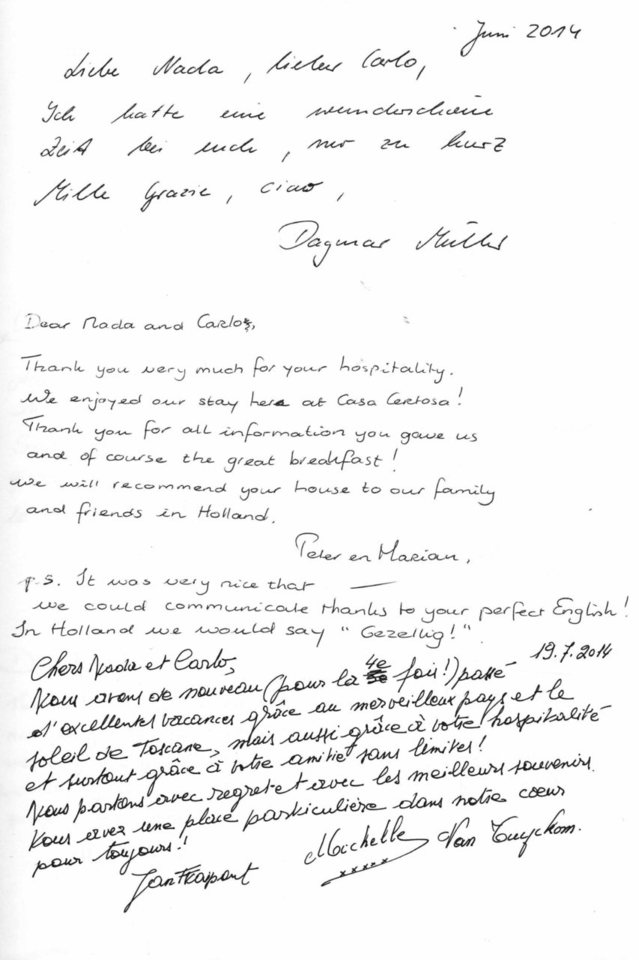 Juni 2014
Liebe Nada, lieber Carlo,
Ich hatte eine wunderschöne
Zeit bei euch, nur zu kurz
Mille Grazie, ciao,
Dagmar Müller
Dear Nada and Carlo,
Thank you very much for your hospitality.
We enjoyed our stay here at Casa Certosa!
Thank you for all information you gave us
and of course the great breakfast!
we will recommend your house to our family
and friends in Holland.
Peter en Marian,
p.s. It was very nice that
we could communicate thanks to your perfect English!
In Holland we would say "Gezellig!".
19.7.2014
Chers Nada et Carlo,
Nous avons de nouveau (pour la 4e fois!) passé
d'excellentes vacances grâce au merveilleux pays et le
soleil de Toscane, mais aussi grâce à votre hospitalité
et surtout grâce à votre amitié sans limites!
Nous partons avec regret et avec les meilleurs souvenirs.
Vous avez une place particulière dans notre coeur
pour toujours!
Michelle Van Tuyckom.
xxxxx
Jan